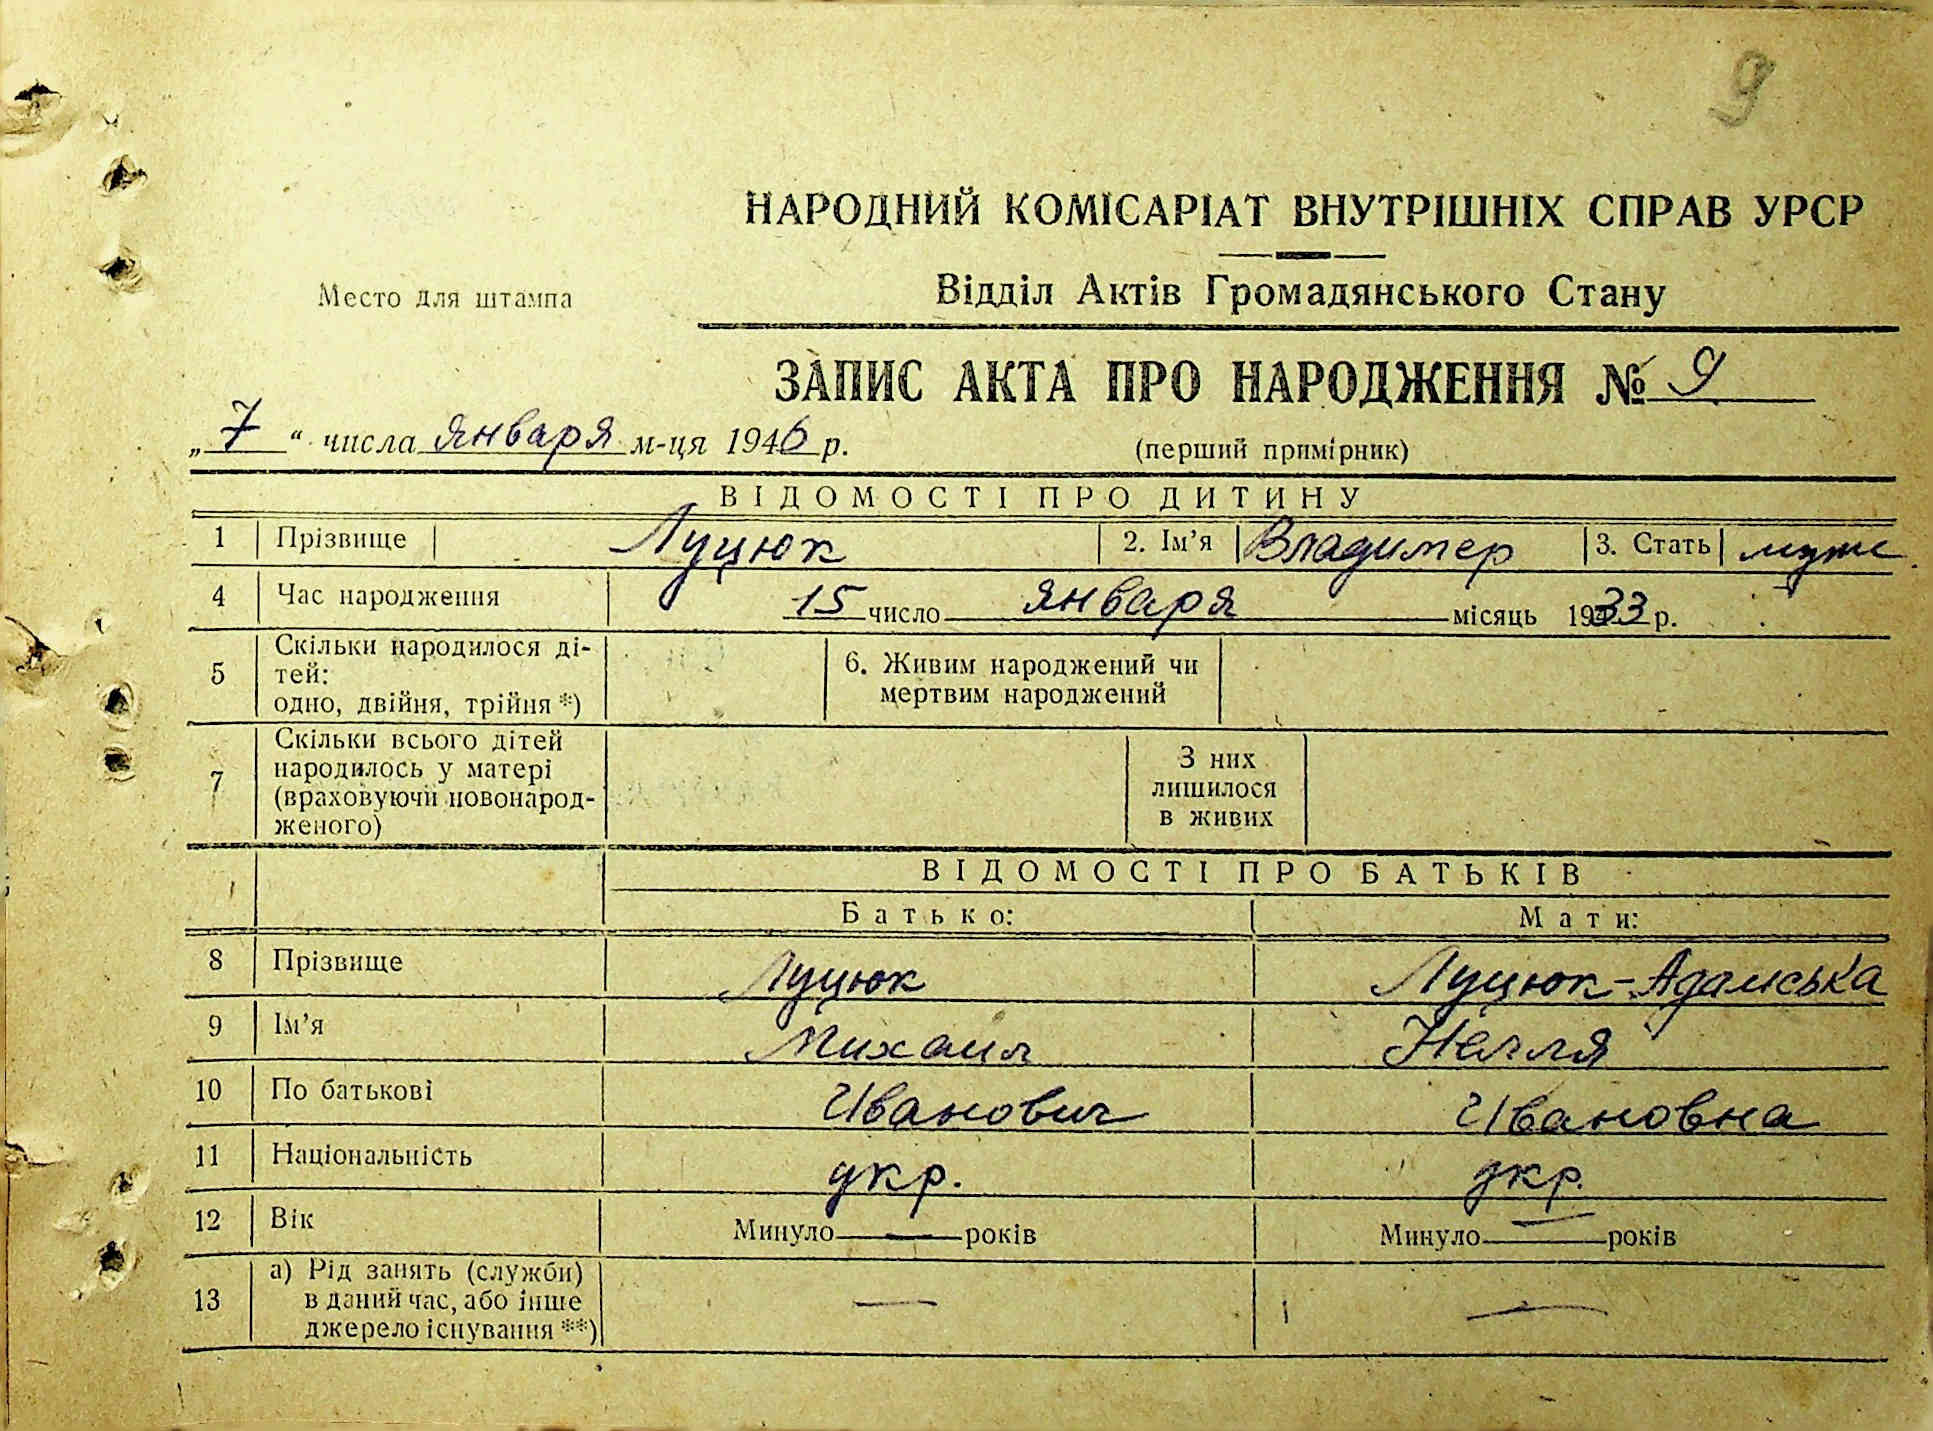 9
НАРОДНИЙ КОМІСАРІАТ ВНУТРІШНІХ СПРАВ УРСР
Место для штампа
Відділ Актів Громадянського Стану
ЗАПИС АКТА ПРО НАРОДЖЕННЯ № 9
„7“ числа января м-ця 1946 р.
(перший примірник)
ВІДОМОСТІ ПРО ДИТИНУ
1 Прізвище Луцюк 2. Ім’я Владимер 3. Стать муж
4 Час народження 15 число января місяць 1933 р.
5 Скільки народилося ді-
тей:
одно, двійня, трійня *)
6. Живим народжений чи
мертвим народжений
7 Скільки всього дітей
народилось у матері
(враховуючи новонарод-
женого)
З них
лишилося
в живих
ВІДОМОСТІ ПРО БАТЬКІВ
Батько: Мати:
8 Прізвище Луцюк Луцюк-Адамська
9 Ім’я Михаил Нелля
10 По батькові Иванович Ивановна
11 Національність укр. укр.
12 Вік Минуло — років Минуло — років
13 а) Рід занять (служби)
в даний час, або інше
джерело існування **)
— —